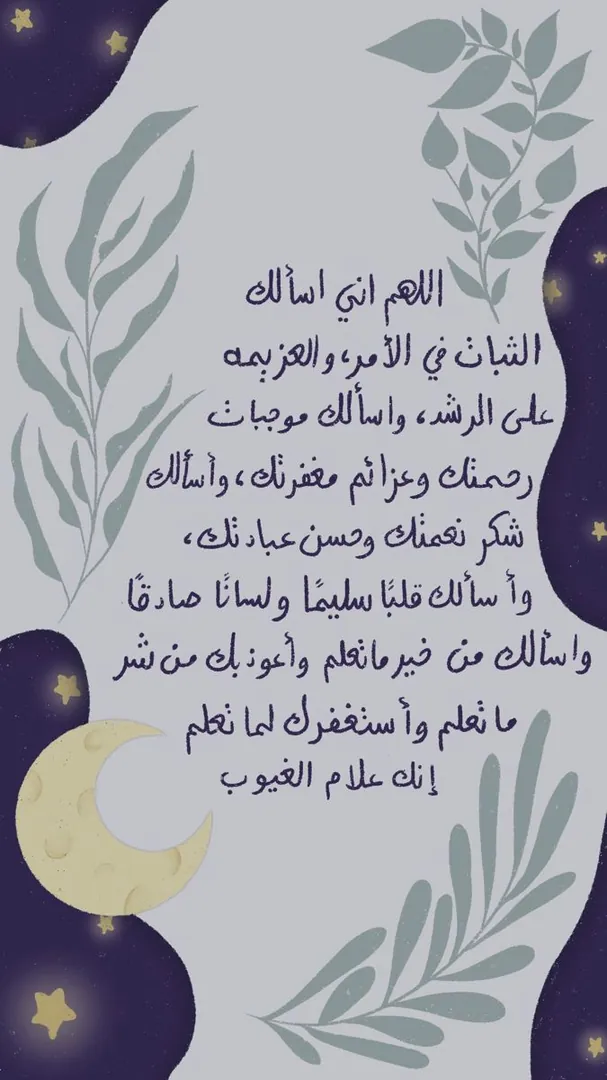 اللهم اني اسألك
الثبات في الأمر، والعزيمه
على الرشد، واسألك موجبات
رحمتك وعزائم مغفرتك، وأسألك
شكر نعمتك وحسن عبادتك،
وأسألك قلبًا سليمًا ولسانًا صادقًا
واسألك من خير ماتعلم وأعوذ بك من شر
ما تعلم وأستغفرك لما تعلم
إنك علام الغيوب